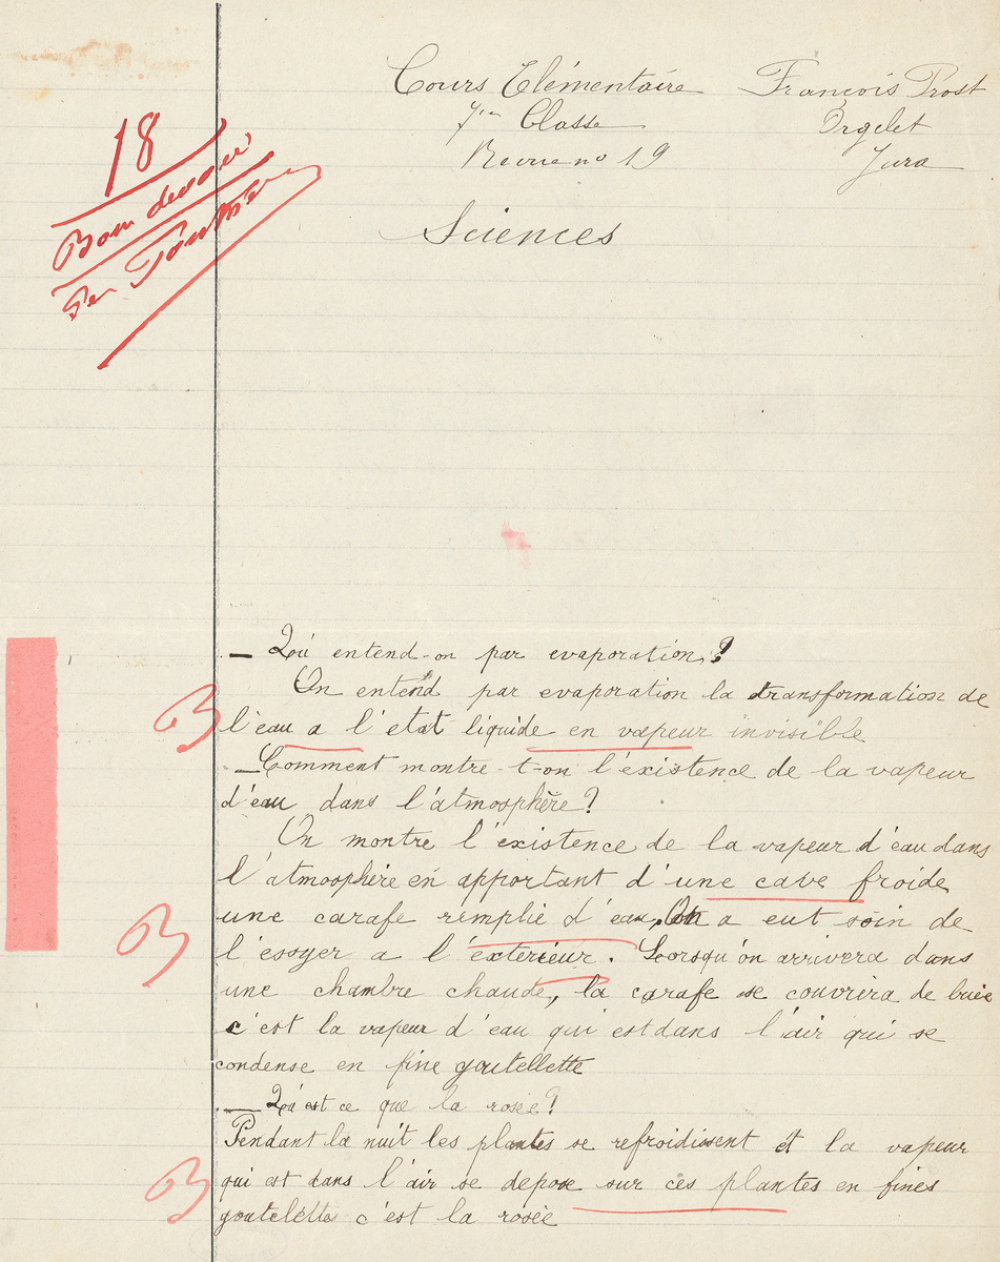 Cours Elémentaire François Prost
1re Classe Orgelet
Revue no 19 Jura
18
Bon devoir
Sciences
— Qu'entend-on par evaporation ?
On entend par evaporation la transformation de
B l'eau a l'etat liquide en vapeur invisible
— Comment montre-t-on l'existence de la vapeur
d'eau dans l'atmosphère ?
On montre l'existence de la vapeur d'eau dans
l'atmosphère en apportant d'une cave froide
B une carafe remplie d'eau, On a eut soin de
l'essyer a l'exterieur. Lorsqu'on arrivera dans
une chambre chaude, la carafe se couvrira de buée
c'est la vapeur d'eau qui est dans l'air qui se
condense en fine goutellette
— Qu'est ce que la rosée ?
Pendant la nuit les plantes se refroidissent et la vapeur
B qui est dans l'air se depose sur ces plantes en fines
goutelette c'est la rosée